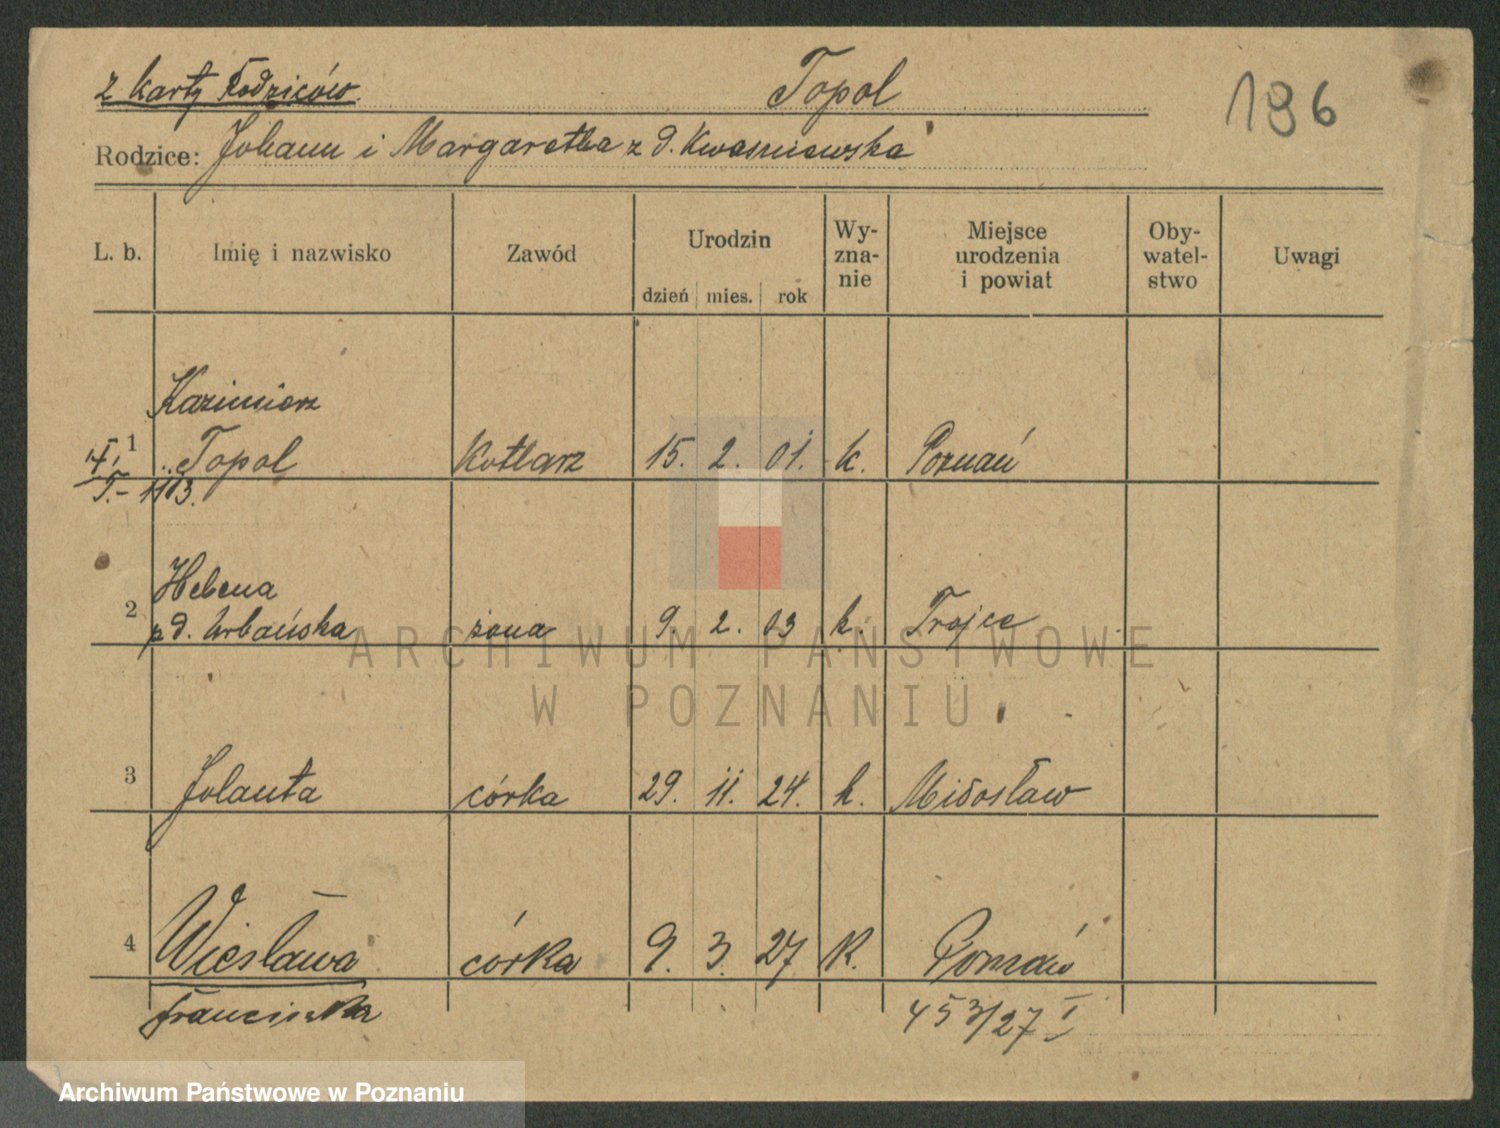 z karty Rodziców. Topol 196
Rodzice: Johann i Margaretha z d. Kwasniewska
L. b. Imię i nazwisko Zawód Urodzin Wy-zna-nie Miejsce urodzenia i powiat Oby-watel-stwo Uwagi
dzień mies. rok
Kazimierz
1 Topol kotlarz 15. 2. 01. k. Poznań
1913.
Helena
2 z d. Urbańska żona 9. 2. 03 k. Trojce
ARCHIWUM PAŃSTWOWE
W POZNANIU
3 Jolanta córka 29. 11. 24. k. Miłosław
4 Wiesława córka 9. 3. 27 k. Poznań
Franciszka 453/27 I
Archiwum Państwowe w Poznaniu